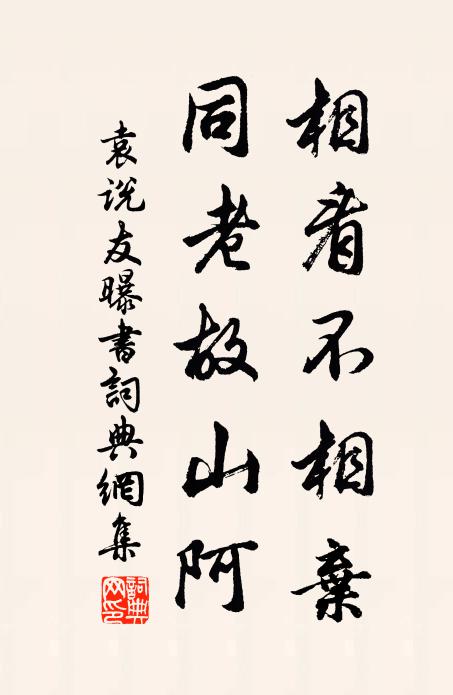 相看不相棄
同老故山阿
袁说友曝書詞典網集
詞典網印